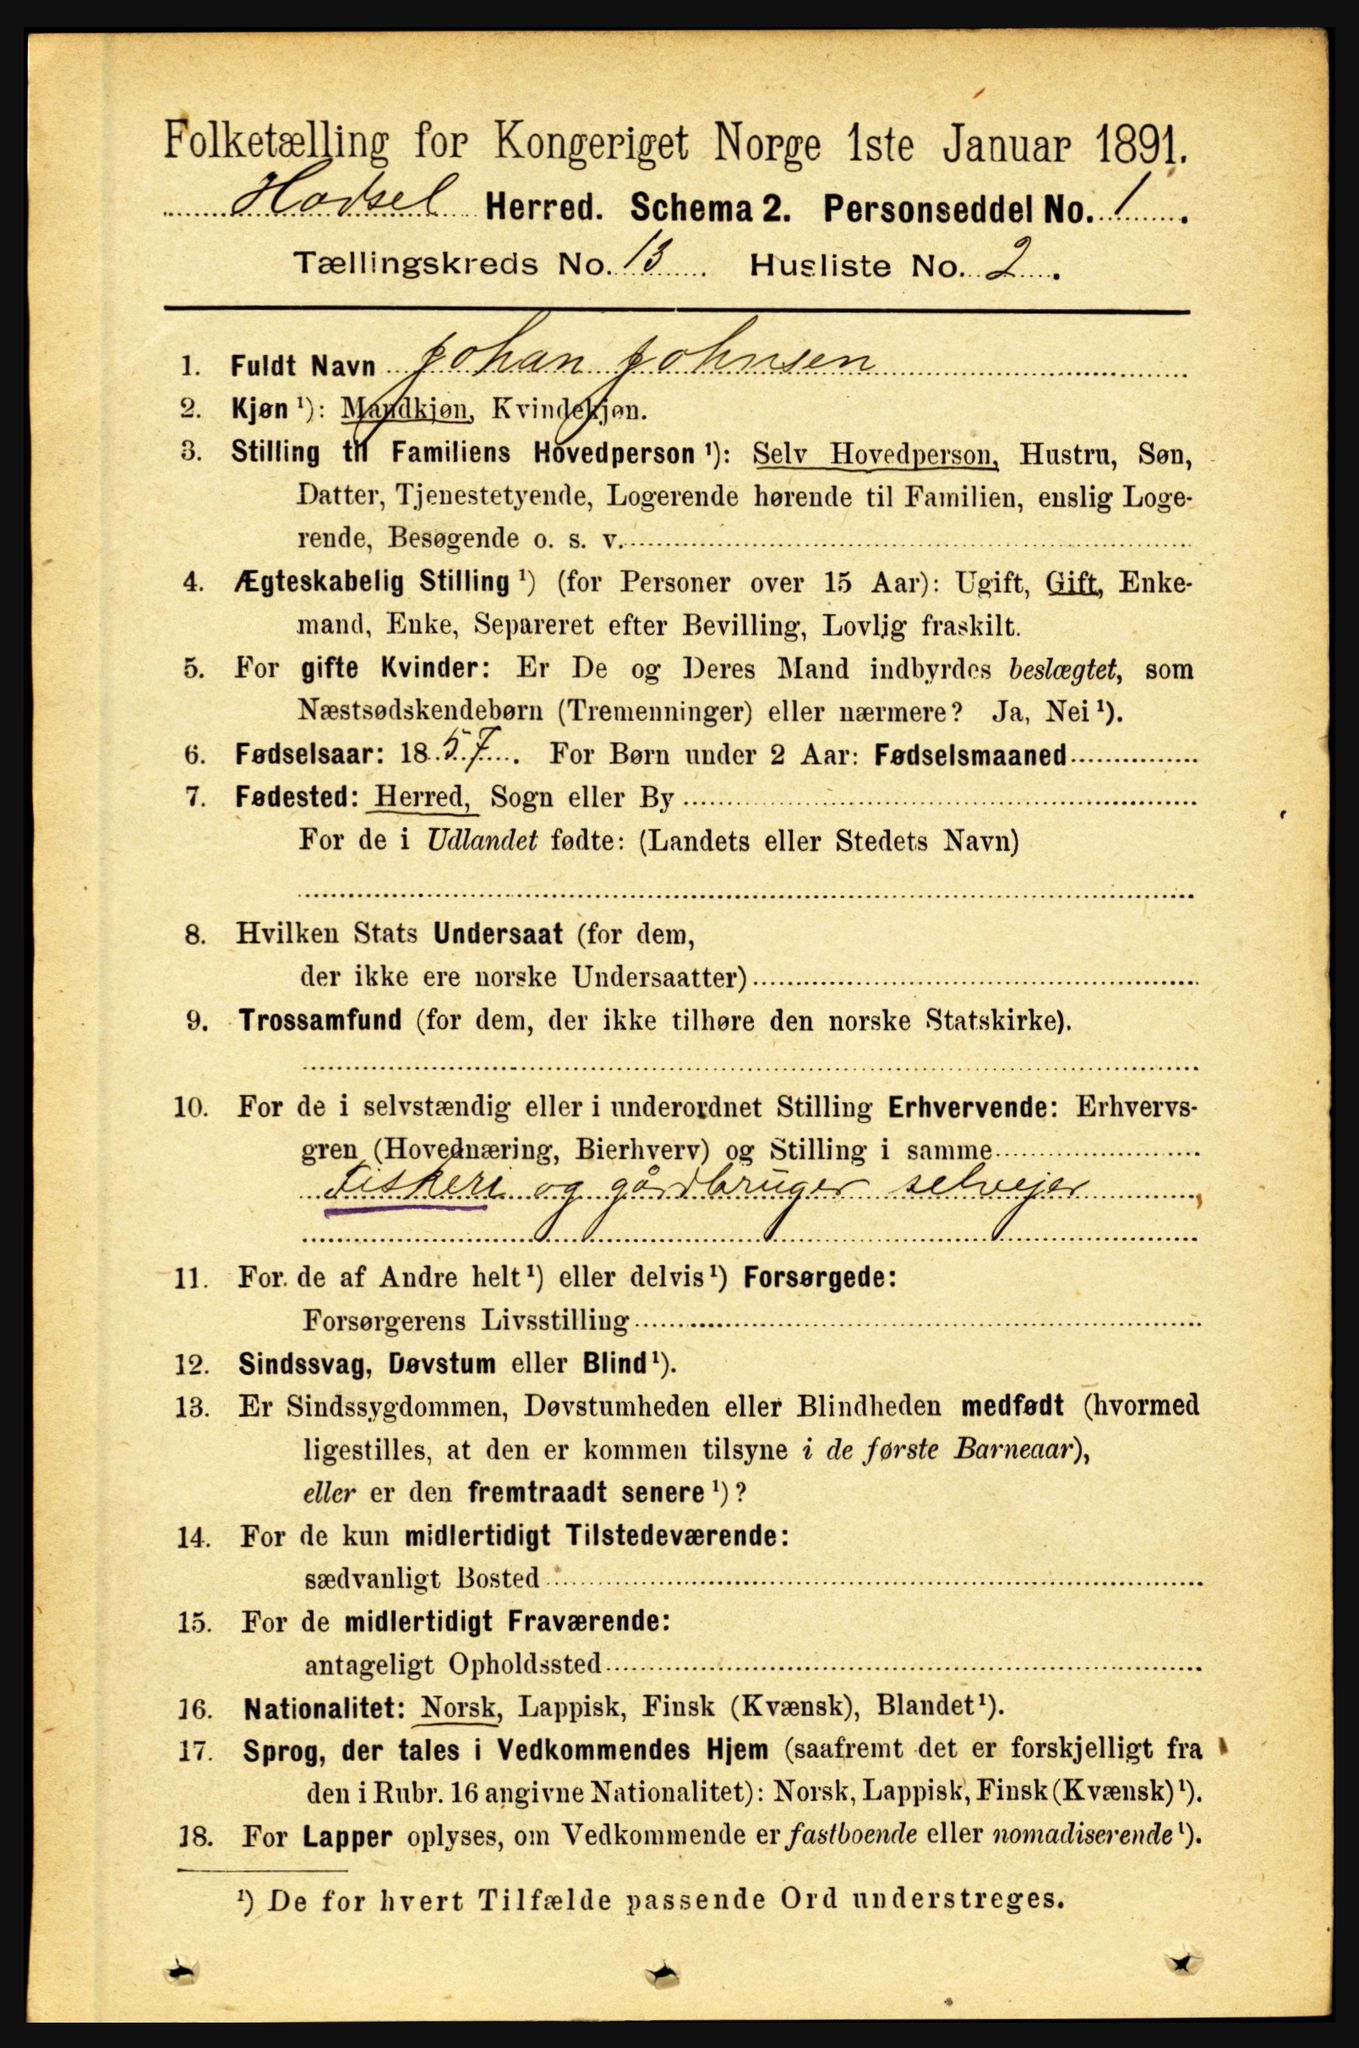 Folketælling for Kongeriget Norge 1ste Januar 1891.
Hadsel Herred. Schema 2. Personseddel No. 1.
Tællingskreds No. 13. Husliste No. 2.
1. Fuldt Navn Johan Johnsen
2. Kjøn ¹): Mandkjøn, Kvindekjøn.
3. Stilling til Familiens Hovedperson ¹): Selv Hovedperson, Hustru, Søn,
Datter, Tjenestetyende, Logerende hørende til Familien, enslig Loge-
rende, Besøgende o. s. v.
4. Ægteskabelig Stilling ¹) (for Personer over 15 Aar): Ugift, Gift, Enke-
mand, Enke, Separeret efter Bevilling, Lovlig fraskilt.
5. For gifte Kvinder: Er De og Deres Mand indbyrdes beslægtet, som
Næstsødskendebørn (Tremenninger) eller nærmere? Ja, Nei ¹).
6. Fødselsaar: 1857. For Børn under 2 Aar: Fødselsmaaned
7. Fødested: Herred, Sogn eller By
For de i Udlandet fødte: (Landets eller Stedets Navn)
8. Hvilken Stats Undersaat (for dem,
der ikke ere norske Undersaatter)
9. Trossamfund (for dem, der ikke tilhøre den norske Statskirke).
10. For de i selvstændig eller i underordnet Stilling Erhvervende: Erhvervs-
gren (Hovednæring, Bierhverv) og Stilling i samme
Fiskeri og gårdbruger selvejer
11. For de af Andre helt ¹) eller delvis ¹) Forsørgede:
Forsørgerens Livsstilling
12. Sindssvag, Døvstum eller Blind ¹).
13. Er Sindssygdommen, Døvstumheden eller Blindheden medfødt (hvormed
ligestilles, at den er kommen tilsyne i de første Barneaar),
eller er den fremtraadt senere ¹)?
14. For de kun midlertidigt Tilstedeværende:
sædvanligt Bosted
15. For de midlertidigt Fraværende:
antageligt Opholdssted
16. Nationalitet: Norsk, Lappisk, Finsk (Kvænsk), Blandet ¹).
17. Sprog, der tales i Vedkommendes Hjem (saafremt det er forskjelligt fra
den i Rubr. 16 angivne Nationalitet): Norsk, Lappisk, Finsk (Kvænsk) ¹).
18. For Lapper oplyses, om Vedkommende er fastboende eller nomadiserende ¹).
¹) De for hvert Tilfælde passende Ord understreges.